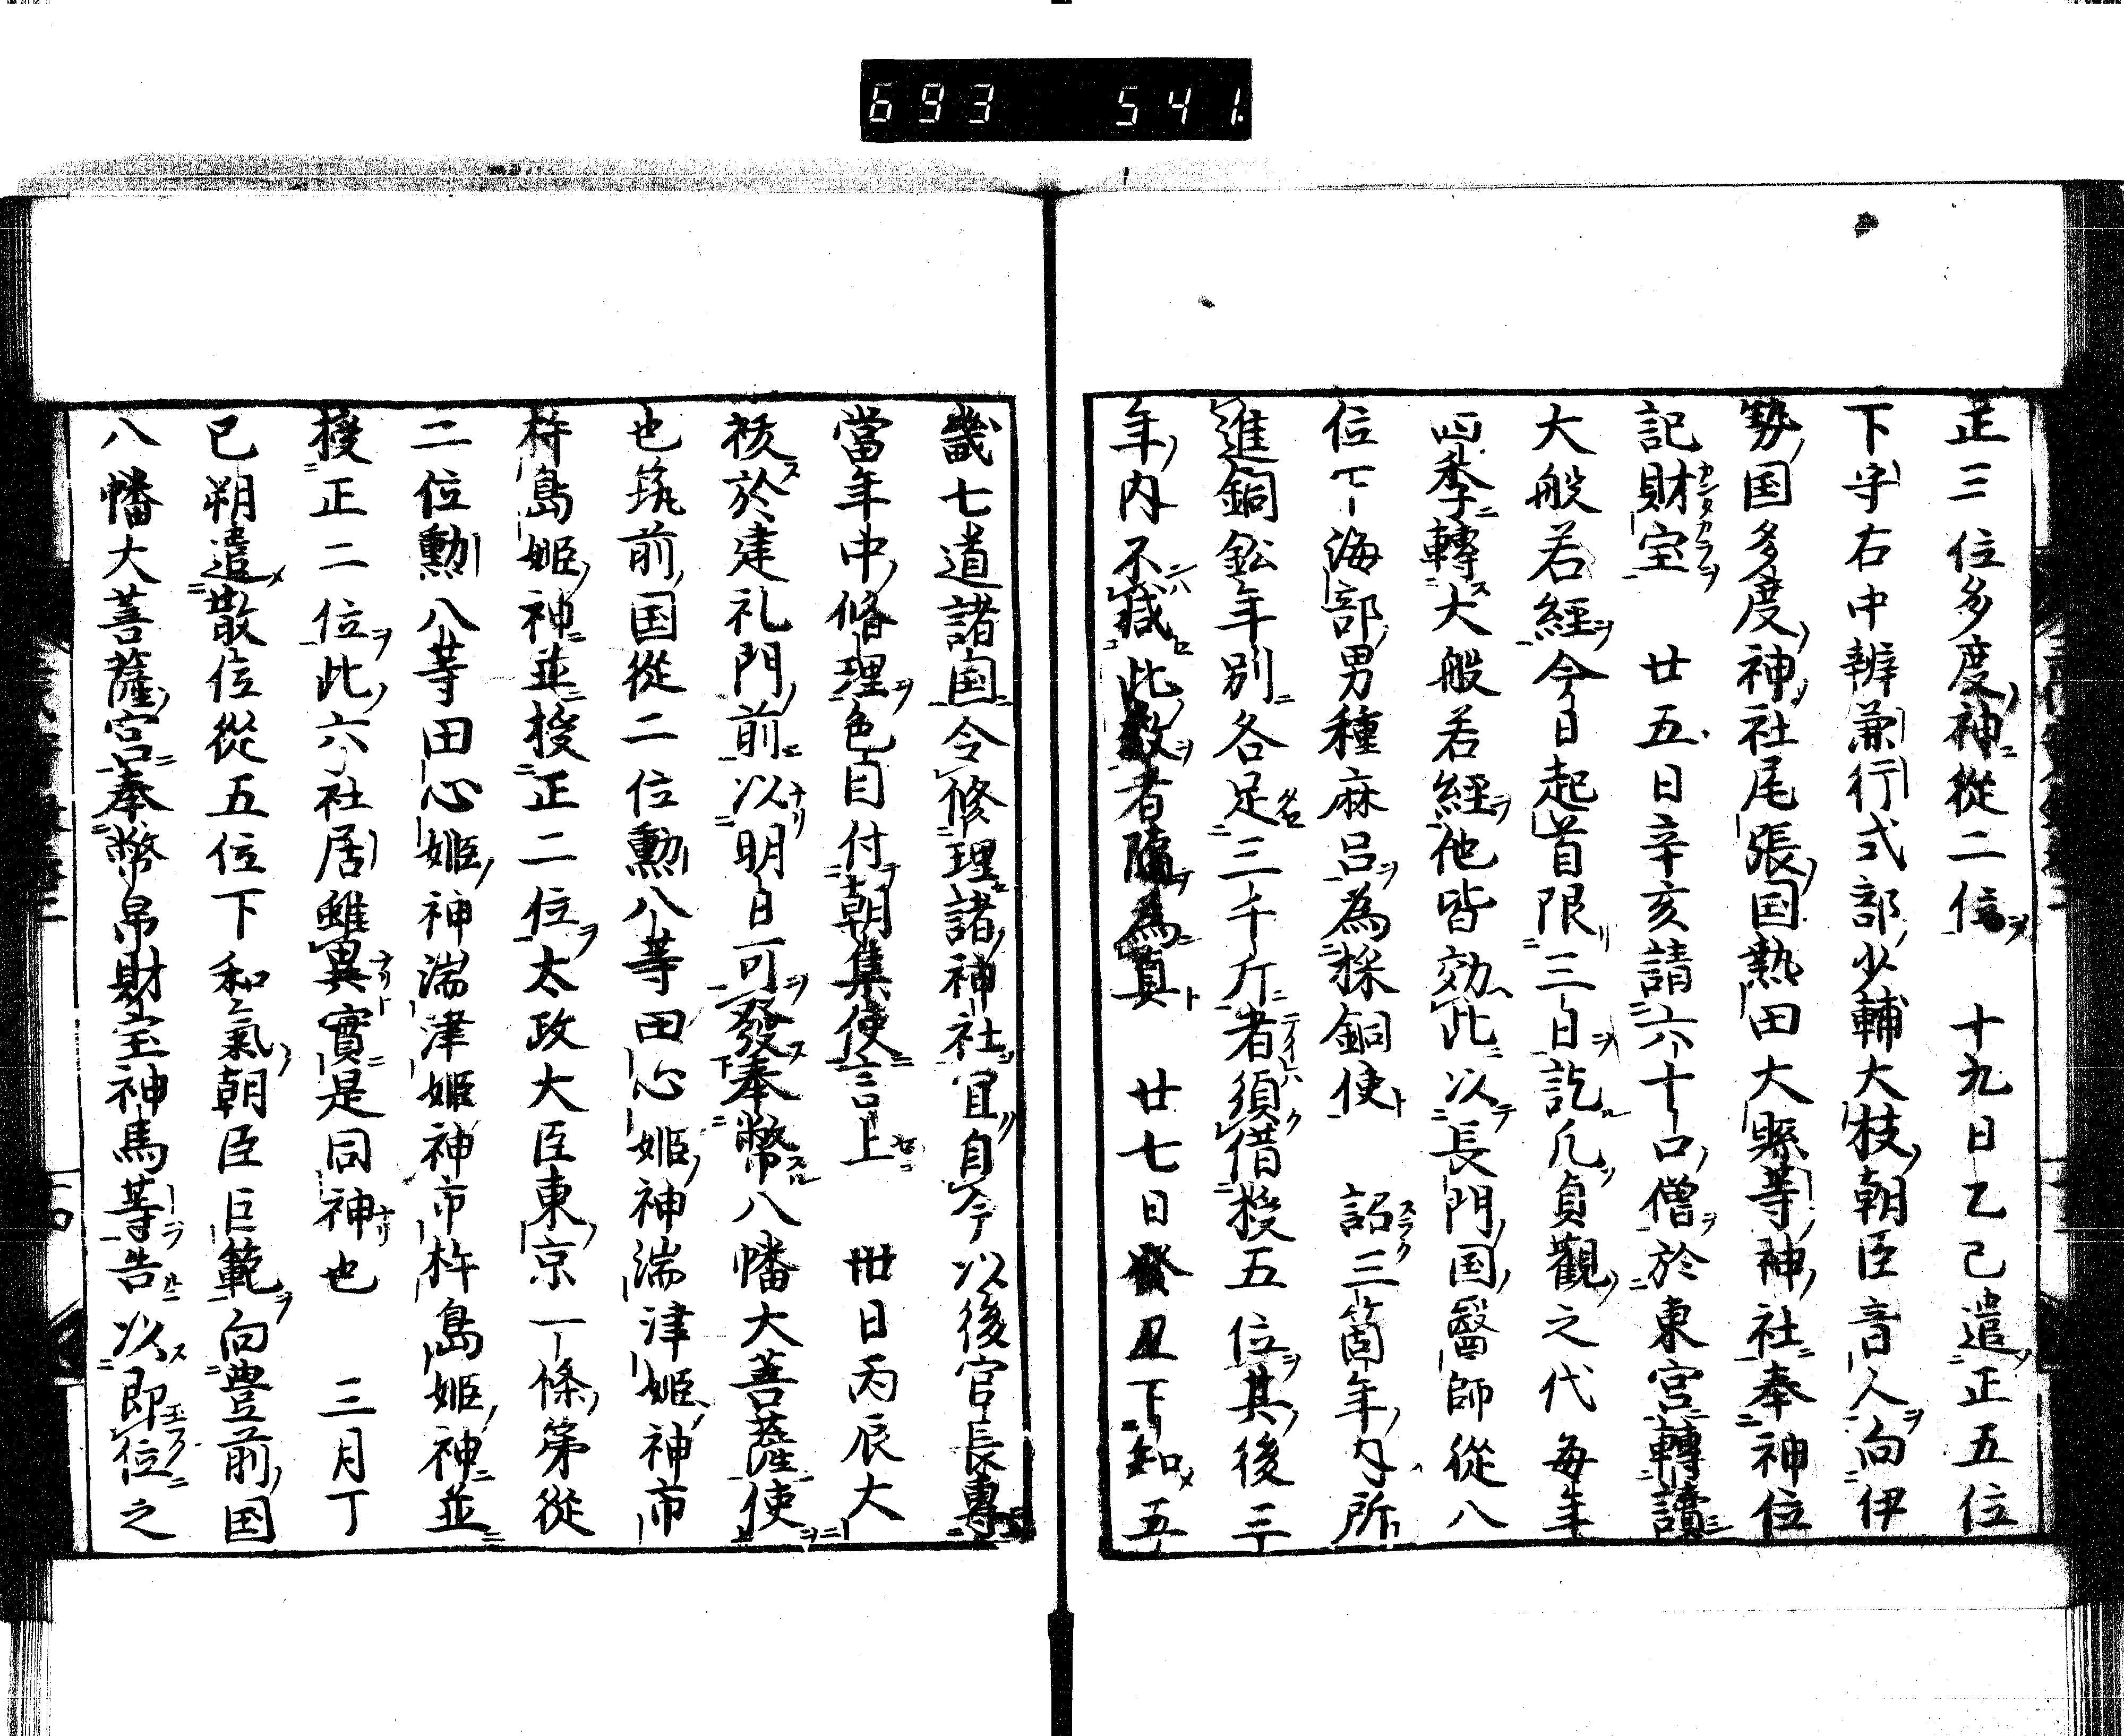 693 541
正三位多度神從二位 十九日乙己遣正五位
下守右中辨兼行式部少輔大枝朝臣音人向伊
勢国多度神社尾張国熱田大縣等神社奉神位
記財宝 廿五日辛亥請六十口僧於東宮轉讀
大般若經今日起首限三日訖凡貞觀之代每年
四季轉大般若經他皆効此以長門国醫師從八
位下海部男種麻呂為採銅使 詔三箇年內所
進銅鈆年別各足三千斤者須借授五位其後三
年內不減此數者隨為真 廿七日癸丑下知五
畿七道諸国令修理諸神社宜自今以後官長專
當年中脩理色目付朝集使言上 卅日丙辰大
祓於建礼門前以明日可發奉幣八幡大菩薩使
也筑前国從二位勲八等田心姬神湍津姬神市
杵島姬神並授正二位太政大臣東京一條第從
二位勲八等田心姬神湍津姬神市杵島姬神並
授正二位此六社居雖異實是同神也 三月丁
巳朔遣散位從五位下和氣朝臣巨範向豊前国
八幡大菩薩宮奉幣帛財宝神馬等告以即位之